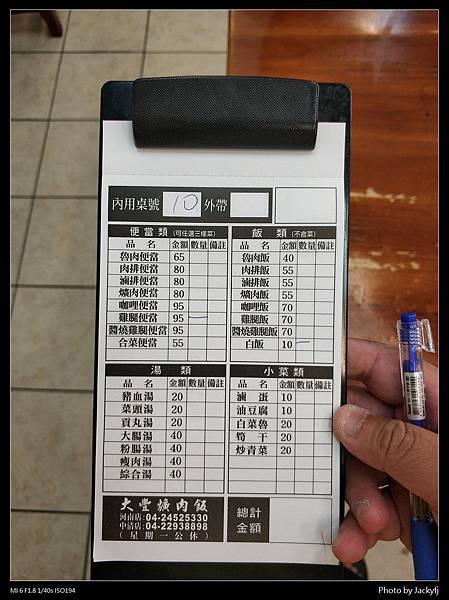 內用桌號 10 外帶
便當類 (可任選三樣菜)
品名 金額 數量 備註
魯肉便當 65
肉排便當 80
滷排便當 80
爌肉便當 80
咖哩便當 95
雞腿便當 95 一
醬燒雞腿便當 95
合菜便當 55
飯類 (不含菜)
品名 金額 數量 備註
魯肉飯 40
肉排飯 55
滷排飯 55
爌肉飯 55
咖哩飯 70
雞腿飯 70
醬燒雞腿飯 70
白飯 10 一
湯類
品名 金額 數量 備註
豬血湯 20
菜頭湯 20
貢丸湯 20
大腸湯 40
粉腸湯 40
瘦肉湯 40
綜合湯 40
小菜類
品名 金額 數量 備註
滷蛋 10
油豆腐 10
白菜魯 20
筍干 20
炒青菜 20
大豐爌肉飯
河南店:04-24525330
中清店:04-22938898
(星期一公休)
總計
金額
MI 6 F1.8 1/40s ISO194
Photo by Jackyfj